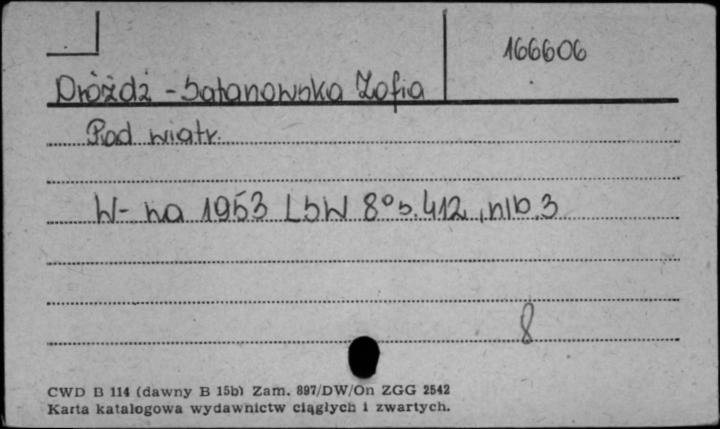 166606
Dróżdż-Satanowska Zofia
Pod wiatr.
W-wa 1953 LSW 8° s.412, nlb.3
8
CWD B 114 (dawny B 15b) Zam. 897/DW/On ZGG 2542
Karta katalogowa wydawnictw ciągłych i zwartych.